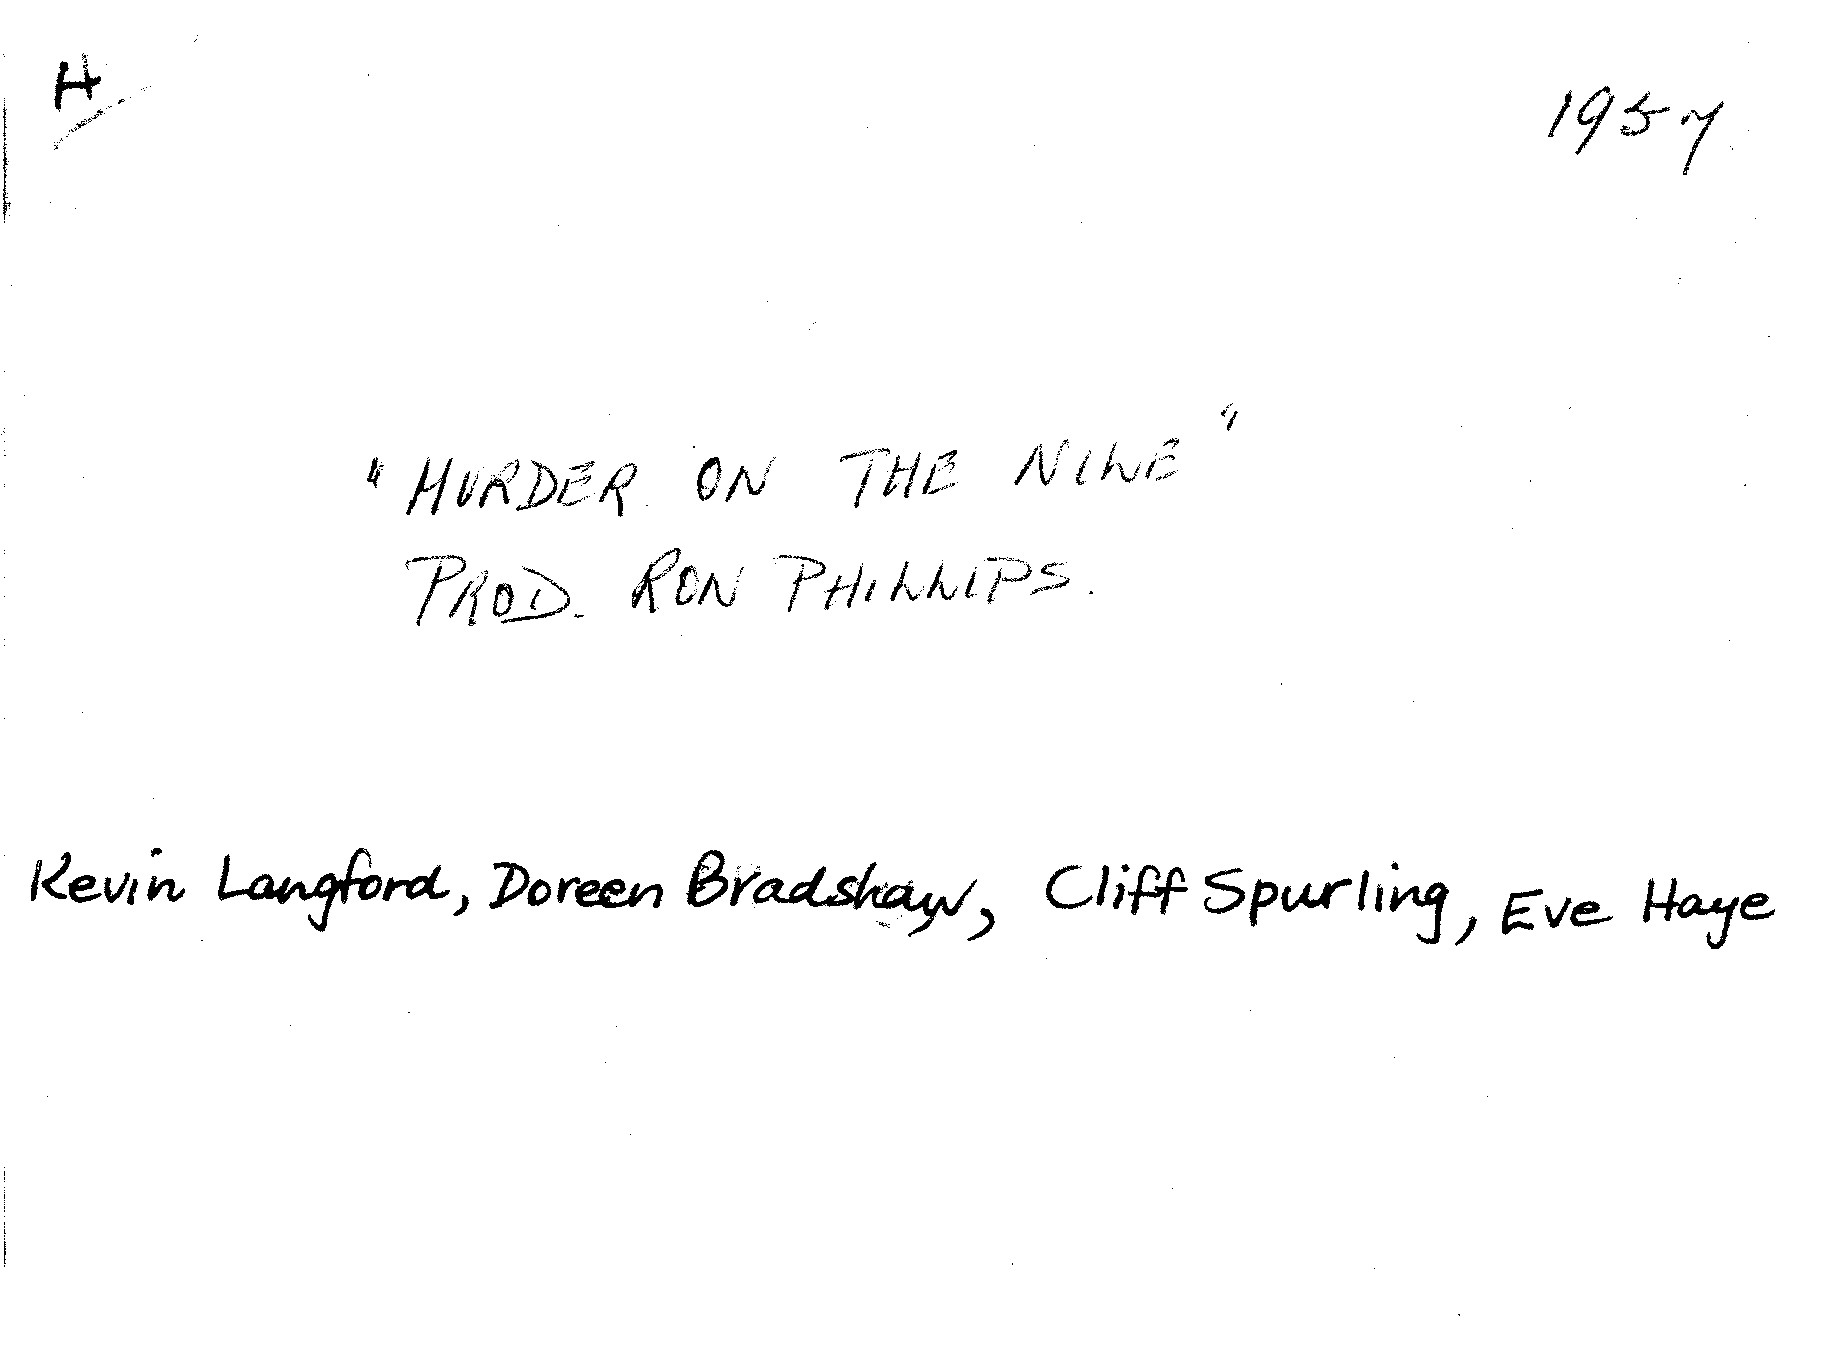 H
1957
"MURDER ON THE NILE"
PROD. RON PHILLIPS.
Kevin Langford, Doreen Bradshaw, Cliff Spurling, Eve Haye